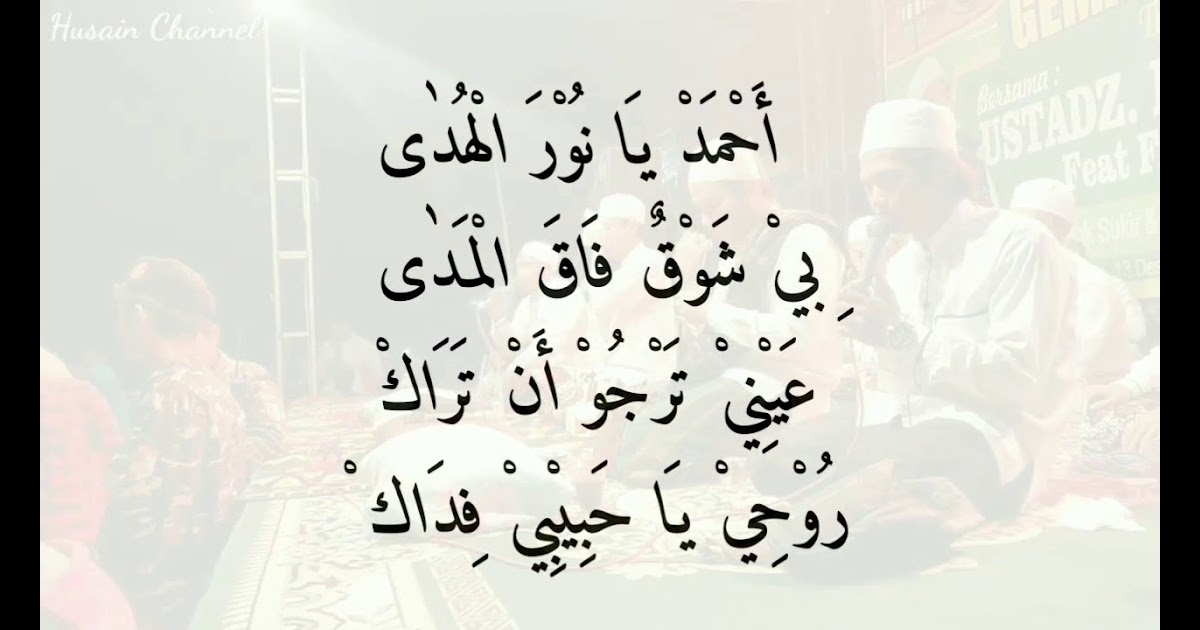 Husain Channel
أَحْمَدْ يَا نُوْرَ الْهُدٰى
بِيْ شَوْقٌ فَاقَ الْمَدٰى
عَيْنِيْ تَرْجُوْ أَنْ تَرَاكْ
رُوْحِيْ يَا حَبِيْبِيْ فِدَاكْ
Bersama :
USTADZ.
Feat